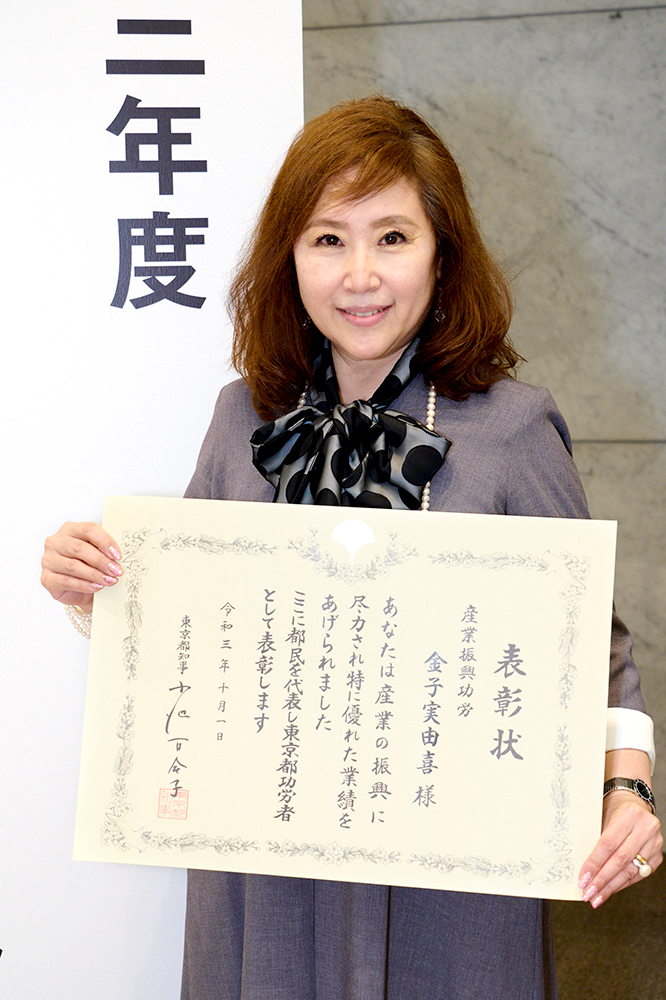 二年度
表彰状
産業振興功労
金子実由喜様
あなたは産業の振興に
尽力され特に優れた業績を
あげられました
ここに都民を代表し東京都功労者
として表彰します
令和三年十月一日
東京都知事
小池百合子